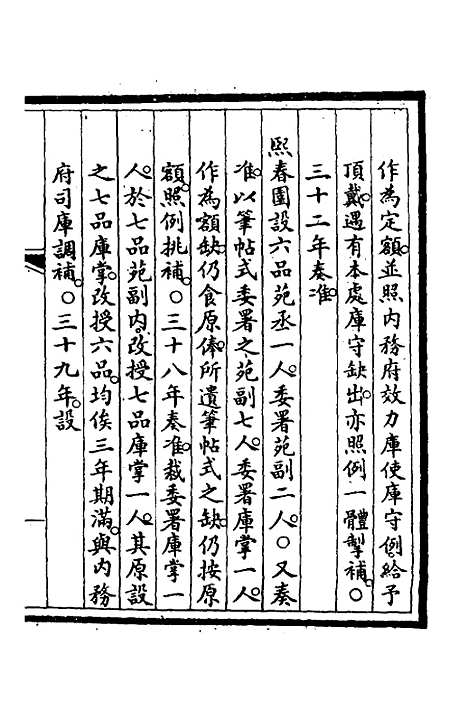 作為定額並照內務府效力庫使庫守例給予
頂戴遇有本處庫守缺出亦照例一體掣補○
三十二年奏准
熙春園設六品苑丞一人委署苑副二人○又奏
准以筆帖式委署之苑副七人委署庫掌一人
作為額缺仍食原俸所遺筆帖式之缺仍按原
額照例挑補○三十八年奏准裁委署庫掌一
人於七品苑副內改授七品庫掌一人其原設
之七品庫掌改授六品均俟三年期滿與內務
府司庫調補○三十九年設